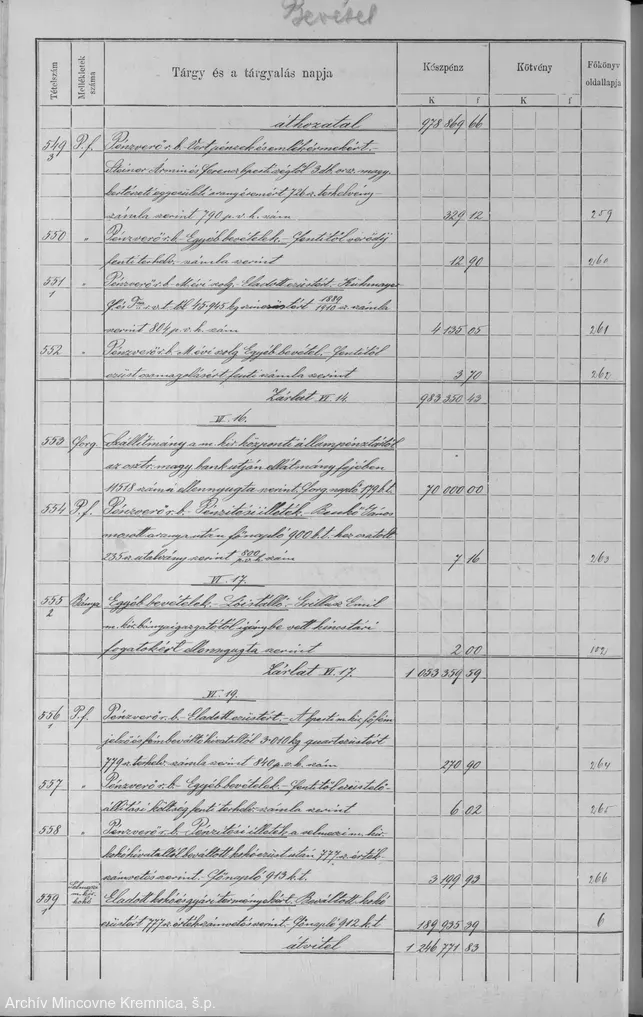 Bevétel
Tételszám
Mellékletek száma
Tárgy és a tárgyalás napja
Készpénz
Kötvény
Főkönyv oldallapja
K f K f
áthozatal 978 869 66
549 P.f. Pénzverő r.b. Vert pénzek és emlékérmekért.
3 Steiner Ármin és Ferencz bpesti cégtől 3 db. orsz. magy.
kertészeti egyesületi aranyéremért 726 sz. terhelvény
számla szerint 790 p.v.h. szám 329 12 259
550 " Pénzverő r.b. Egyéb bevételek. Fentitől verődíj
fenti terhelv. számla szerint 12 90 260
551 " Pénzverő r.b. Mévi szolg. Eladott ezüstért.
1 15·945 kg színezüstért 1889/1910 sz. számla
szerint 804 p.v.h. szám 4 135 05 261
552 " Pénzverő r.b. Mévi szolg. Egyéb bevétel. Fentitől
ezüst csomagolásért fenti számla szerint 3 70 262
Zárlat VI. 14. 983 350 43
VI. 16.
553 Forg. Szállítmány a m. kir. központi állampénztártól
az osztr. magy. bank utján ellátmány fejében
11518 számú ellennyugta szerint. Forg. napló 179 k.t. 70 000 00
554 P.f. Pénzverő r.b. Pénzitési illeték. Benkő János
mosott aranya után főnapló 900 b.t. hoz csatolt
235 sz. utalvány szerint 800 p.v.h. szám 7 16 263
VI. 17.
555 Bánya Egyéb bevételek. Lóistálló. Grillusz Emil
2 m. kir. bányaigazgatótól igénybe vett kincstári
fogatokért ellennyugta szerint 2 00 102
Zárlat VI. 17. 1 053 359 59
VI. 19.
556 P.f. Pénzverő r.b. Eladott ezüstért. A bpesti m. kir. főfém
1 jelző és fémbeváltó hivataltól 3·010 kg quartezüstért
779 sz. terhelv. számla szerint 840 p.v.h. szám 270 90 264
557 " Pénzverő r.b. Egyéb bevételek. Fentitől ezüst elő-
állítási költség fenti terhelv. számla szerint 6 02 265
558 " Pénzverő r.b. Pénzitési illeték, a selmeczi m. kir.
kohóhivataltól beváltott kohóezüst után 777 sz. érték-
számvetés szerint. Főnapló 913 k.t. 3 199 93 266
559 Selmeczi m. kir. kohó Eladott kohó és gyári terményekért. Beváltott kohó
1 ezüstért 777 sz. értékszámvetés szerint. Főnapló 912 k.t 189 935 39 6
átvitel 1 246 771 83
Archív Mincovne Kremnica, š.p.